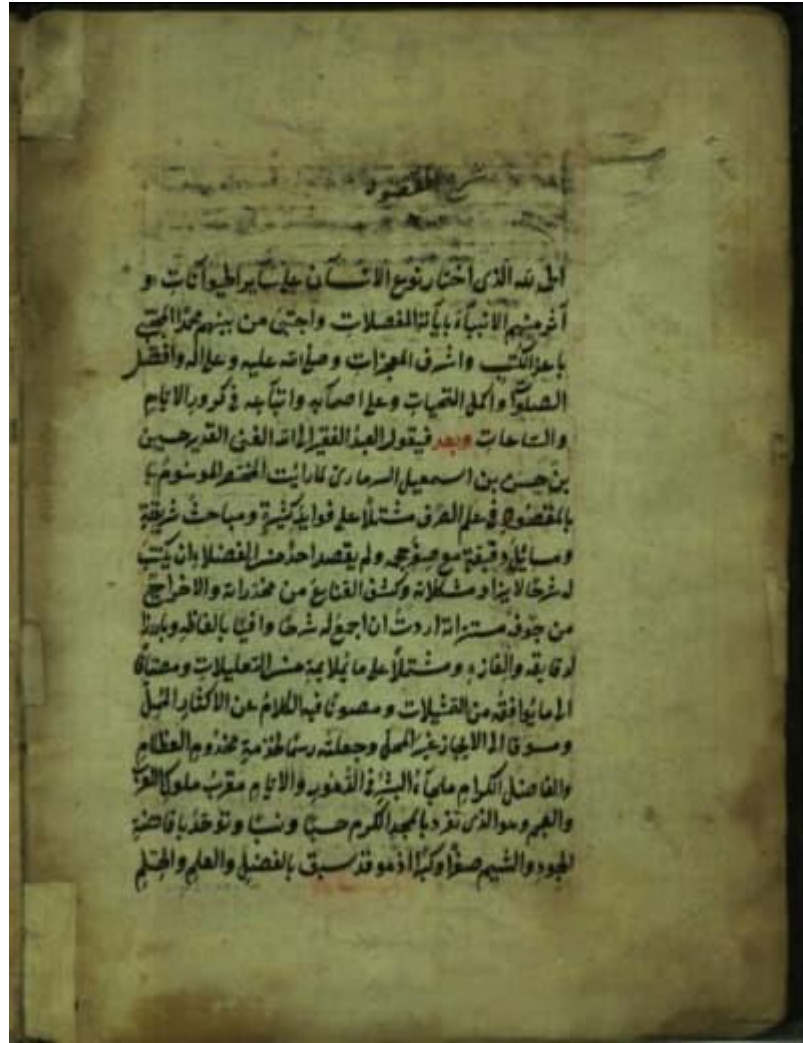 شرح المقصود
الحمد لله الذى اختار نوع الانسان على ساير الحيوانات و
آثر منهم الانبياء بايانة المفصلات واجتبى من بينهم محمدا المجتبى
باعز الكتب واشرف المعجزات وصلى الله عليه وعلى اله وافضل
الصلوات واكمل التحيات وعلى اصحابه واتباعه فى كرور الايام
والساعات وبعد فيقول العبد الفقير الى الله الغنى القدير حسين
بن حسن بن اسمعيل السرمارى لما رايت المختصر الموسوم با
بالمقصود فى علم الصرف مشتملا على فوايد كثيرة ومباحث شريفة
ومسائل دقيقة مع صغر حجمه ولم يقصد احد من الفضلاء ان يكتب
له شرحا لايراد مشكلاته وكشف القناع من مخدراته والاخراج
من جوف اردت ان اجمع له شرحا وافيا بالفاظه وبارزا
لدقايقه والغازه ومشتملا على ما يلايمه من التعليلات ومضافا
الى ما يوافقه من التمثيلات ومصونا فيه الكلام عن الاكثار الممل
ومسوقا الى الايجاز غير المخل وجعلته رسما لخدمة مخدوم العظام
والفاضل الكرام ملجاء البشر فى الدهور والايام مقرب ملوك العرب
والعجم وهو الذى تفرد بالمجد الكرم حسبا ونسبا وتوحد بافاضة
الجود والشيم صغرا وكبرا اذ هو قد سبق بالفضل والعلم والحلم